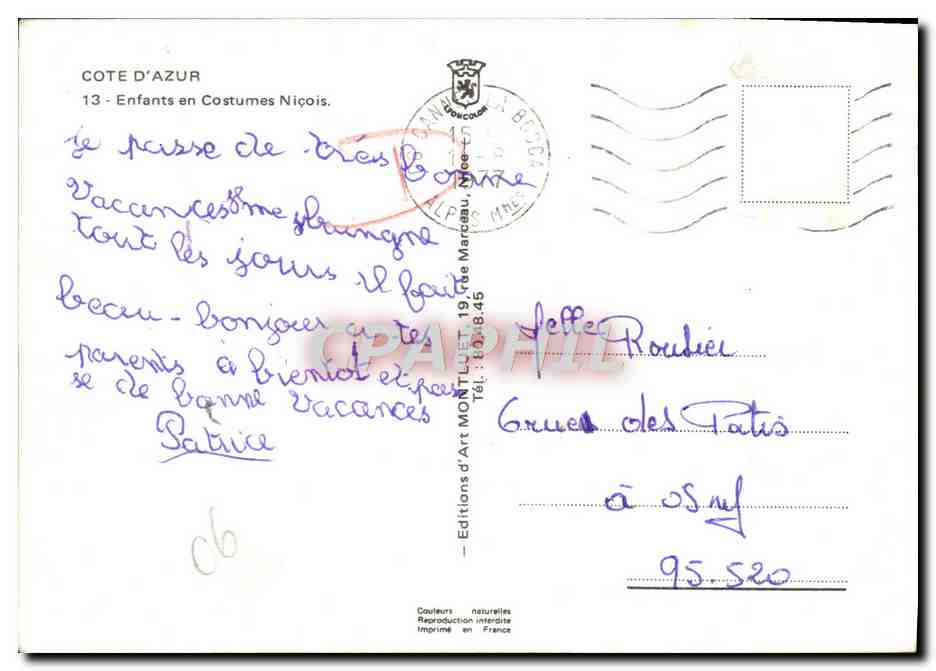 COTE D'AZUR
13 - Enfants en Costumes Niçois.
je passe de très bonne
vacances me
tout les jours il fait
beau - bonjour a tes
parents à bientot et pas
se de bonne vacances
Patrice
06
EPONCOLOR
CANNES LA BOCCA
15
1977
ALPES Mmes
— Editions d'Art MONTLUET, 19, rue Marceau, Nice —
Tél. : 80.48.45
CPAPHIL
Melle Roudier
6 rue des Patis
à Osny
95.520
Couleurs naturelles
Reproduction interdite
Imprimé en France